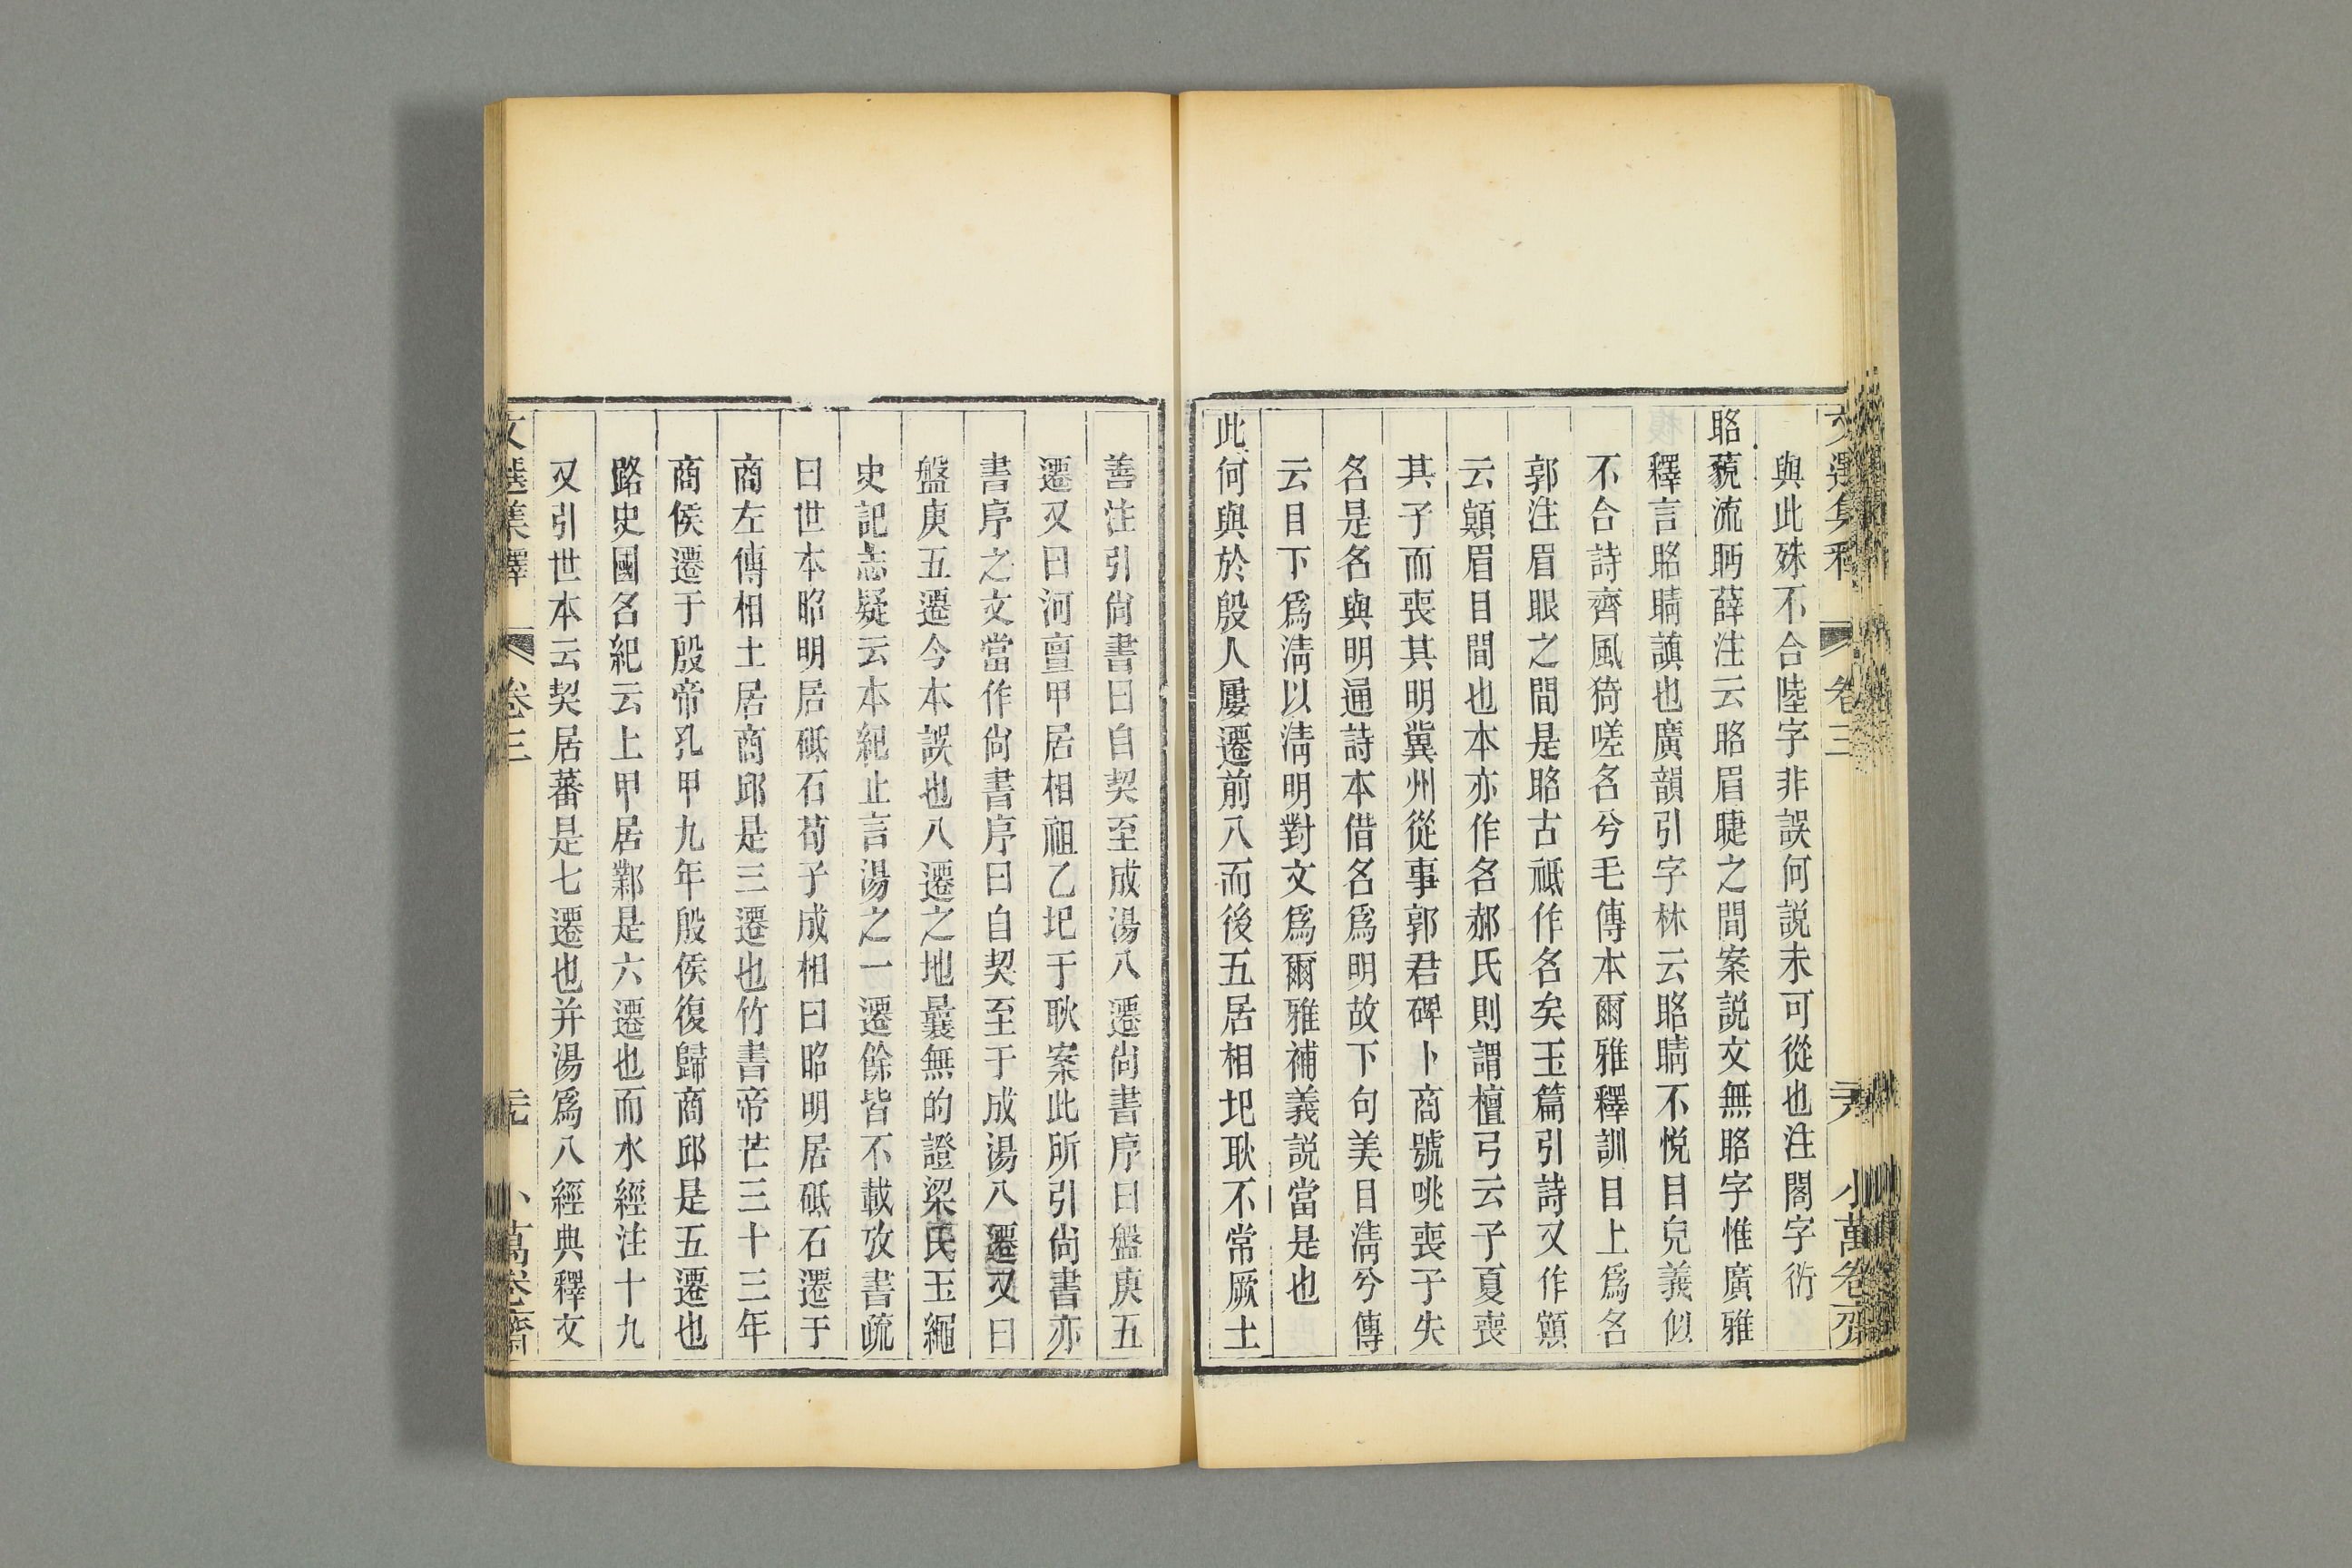 文選集釋 卷三 小萬卷齋
與此殊不合陸字非誤何説未可從也注閣字衍
眳藐流眄薛注云眳眉睫之間案説文無眳字惟廣雅
釋言眳睛䫬也廣韻引字林云眳睛不悅目皃義似
不合詩齊風猗嗟名兮毛傳本爾雅釋訓目上爲名
郭注眉眼之間是眳古祗作名矣玉篇引詩又作顮
云顮眉目間也本亦作名郝氏則謂檀弓云子夏喪
其子而喪其明冀州從事郭君碑卜商號咷喪子失
名是名與明通詩本借名爲明故下句美目淸兮傳
云目下爲淸以淸明對文爲爾雅補義説當是也
此何與於殷人屢遷前八而後五居相圯耿不常厥土
善注引尙書曰自契至成湯八遷尙書序曰盤庚五
遷又曰河亶甲居相祖乙圯于耿案此所引尙書亦
書序之文當作尙書序曰自契至于成湯八遷又曰
盤庚五遷今本誤也八遷之地曩無的證梁氏玉繩
史記志疑云本紀止言湯之一遷餘皆不載攷書疏
曰世本昭明居砥石荀子成相曰昭明居砥石遷于
商左傳相土居商邱是三遷也竹書帝芒三十三年
商侯遷于殷帝孔甲九年殷侯復歸商邱是五遷也
路史國名紀云上甲居鄴是六遷也而水經注十九
又引世本云契居蕃是七遷也并湯爲八經典釋文
文選集釋 卷三 小萬卷齋